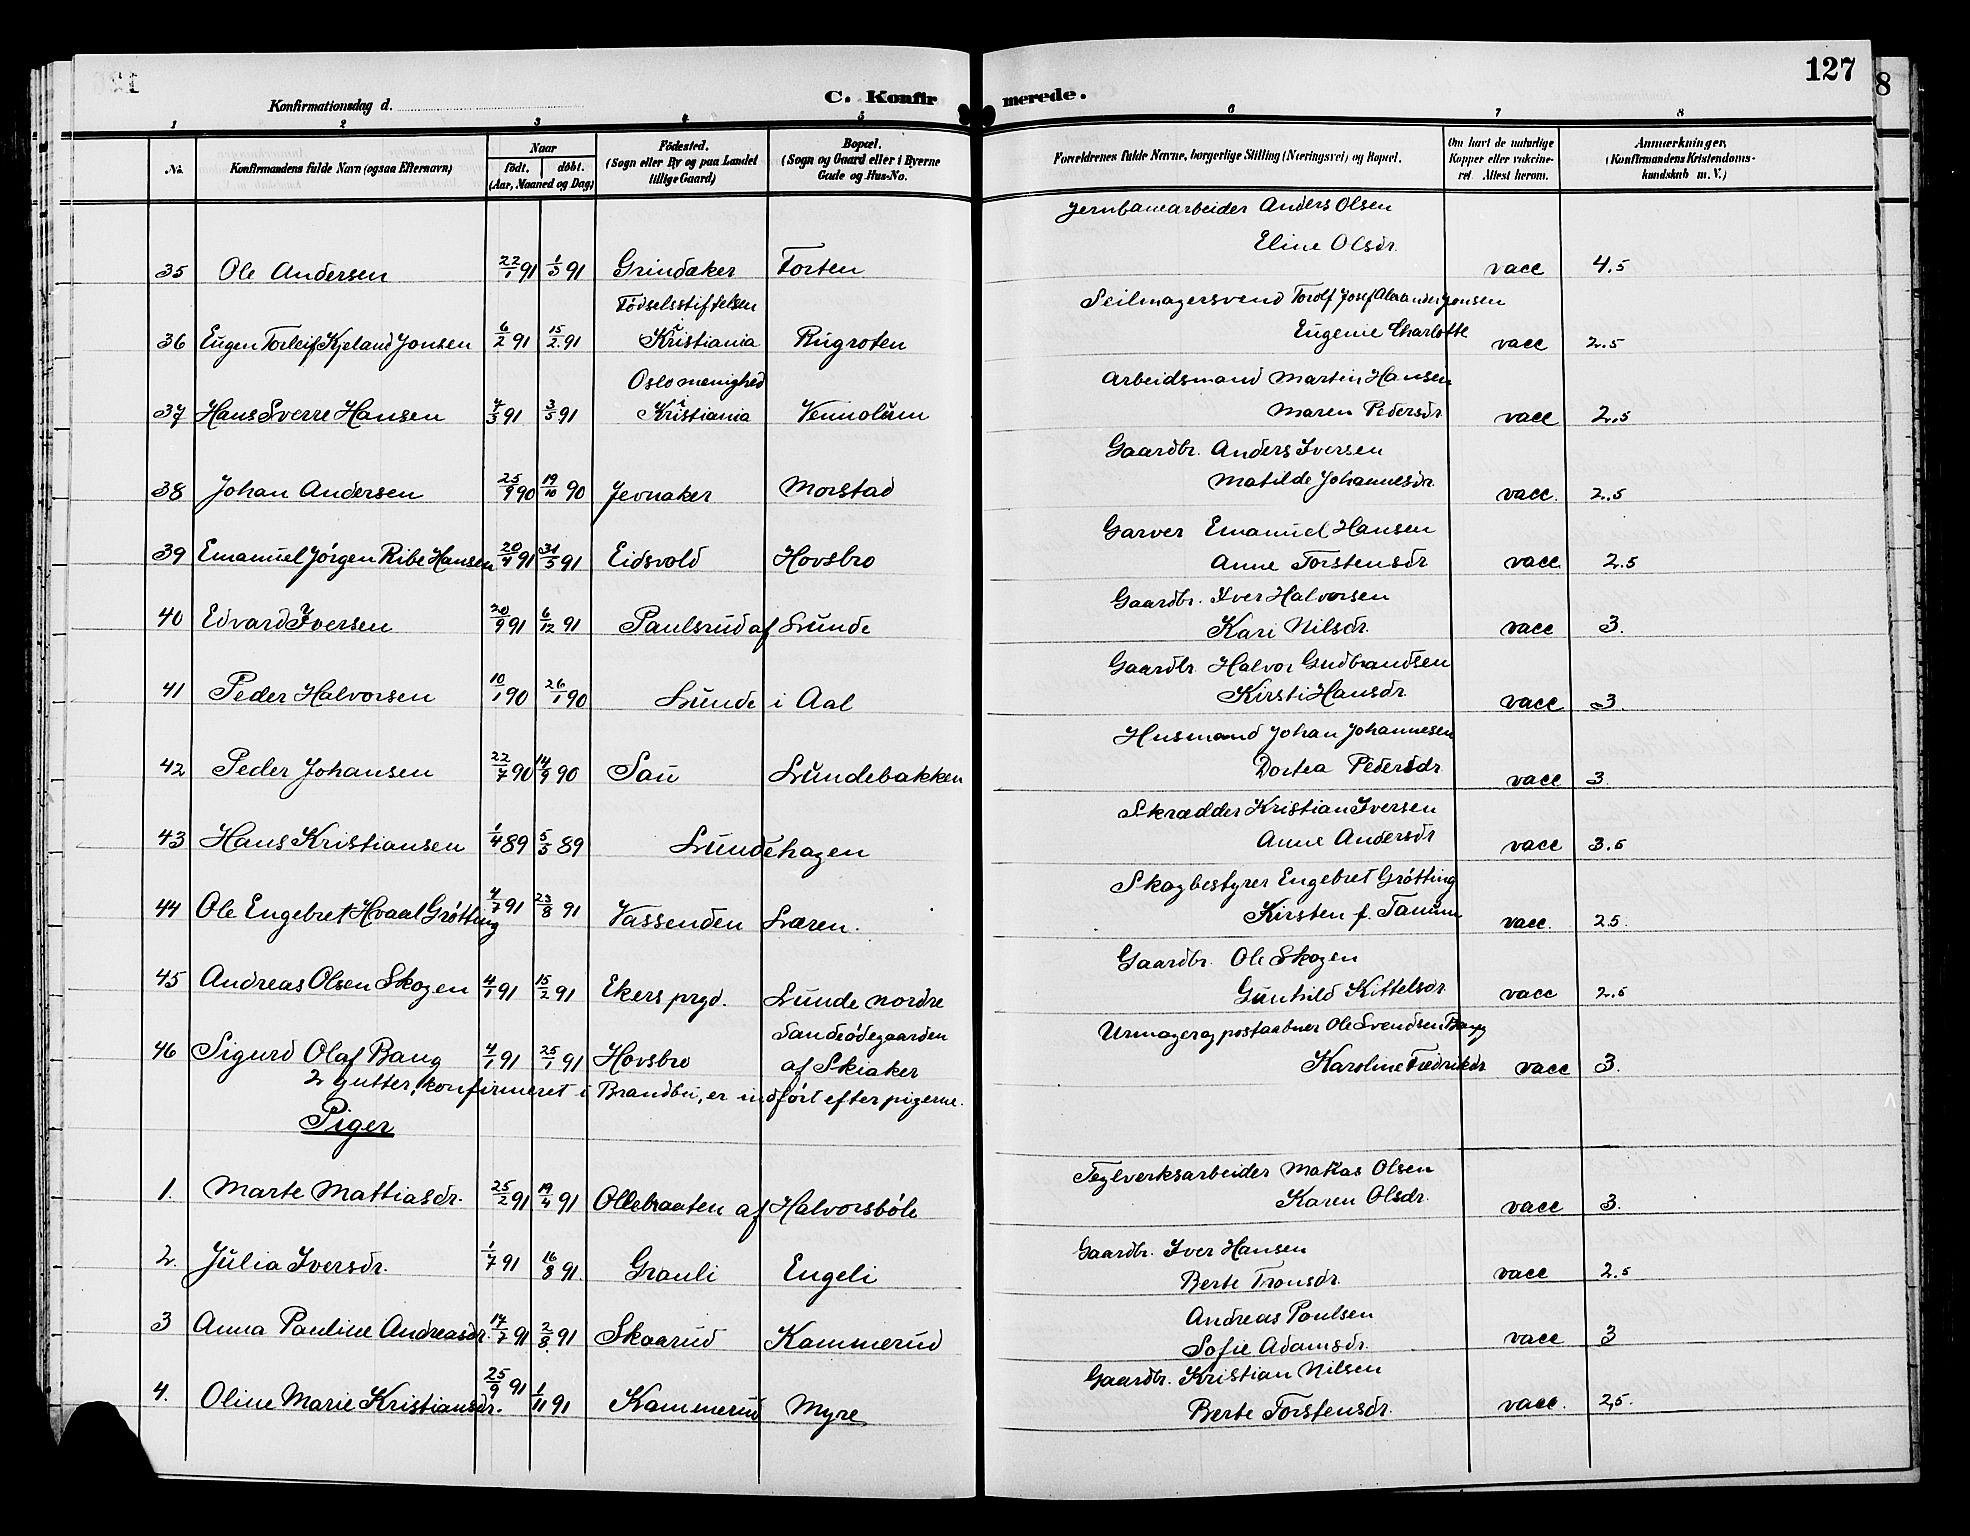 127
8
Konfirmationsdag d.
C. Konfirmerede.
1 2 3 4 5 6 7 8
No. Konfirmandens fulde Navn (ogsaa Efternavn) Naar födt. döbt. (Aar, Maaned og Dag) Födested. (Sogn eller By og paa Landet tillige Gaard) Bopæl. (Sogn og Gaard eller i Byerne Gade og Hus-No. Forældrenes fulde Navne, borgerlige Stilling (Næringsvei) og Bopæl. Om havt de naturlige Kopper eller vakcineret Attest herom. Anmærkninger, (Konfirmandens Kristendomskundskab m. V.)
Jernbanearbeider Anders Olsen
35 Ole Andersen 22/1 91 1/3 91 Grindaker Torten Eline Olsdr. vacc 4.5
Fødselsstiftelsen Seilmagersvend Torolf Josef Alexander Jonsen
36 Eugen Torleif Kjeland Jonsen 6/2 91 15/2 91 i Kristiania Rugroten Eugenie Charlotte vacc 2.5
Oslo menighed Arbeidsmand Martin Hansen
37 Hans Sverre Hansen 4/3 91 3/5 91 i Kristiania Vennolum Maren Pedersdr vacc 2.5
Gaardbr. Anders Iversen
38 Johan Andersen 25/9 90 19/10 90 Jevnaker Morstad Matilde Johannesdr. vacc. 2.5
Garver Emanuel Hansen
39 Emanuel Jørgen Ribe Hansen 20/4 91 31/5 91 Eidsvold Hovsbro Anne Torstensdr vacc 2.5
Gaardbr. Iver Halvorsen
40 Edvard Iversen 20/9 91 6/12 91 Paulsrud af Lunde Kari Nilsdr. vacc 3.
Gaardbr. Halvor Gudbrandsen
41 Peder Halvorsen 10/1 90 26/1 90 Lunde i Aal Kirsti Hansdr. vacc 3
Husmand Johan Johannesen
42 Peder Johansen 22/7 90 14/9 90 Sau Lundebakken Dortea Pedersdr. vacc 3.
Skrædder Kristian Iversen
43 Hans Kristiansen 1/4 89 5/5 89 Lundehagen Anne Andersdr vacc 3.5
Skogbestyrer Engebret Grøtting
44 Ole Engebret Hvaal Grøtting 4/7 91 23/8 91 Vassenden Læren. Kirsten f. Tanum vacc. 25.
Gaardbr. Ole Skogen
45 Andreas Olsen Skogen 4/1 91 15/2 91 Ekers prgd. Lunde nordre Gunhild Kittelsdr. vacc 2.5
Sandsødegaarden Urmager og postaabner Ole Svendsen Bang
46 Sigurd Olaf Bang 4/1 91 25/1 91 Hovsbro af Skiaker Karoline Fredriksdr vacc 3.
2 gutter, konfirmeret i Brandbu, er indført efter pigerne.
Piger
Teglverksarbeider Matias Olsen
1. Marte Mattiasdr. 25/2 91 19/4 91 Ollebraaten af Halvorsbøle Karen Olsdr. vacc 3.
Gaardbr. Iver Hansen
2. Julia Iversdr. 1/7 91 16/8 91. Grauli Engeli Berte Tronsdr. vacc 2.5
Andreas Paulsen
3 Anna Pauline Andreasdr. 14/7 91 2/8 91 Skaarud Kammerud Sofie Adamsdr. vacc 3
Gaardbr. Kristian Nilsen
4. Oline Marie Kristiansdr. 25/9 91 1/11 91 Kammerud Myre Berte Torstensdr. vacc. 2,5.